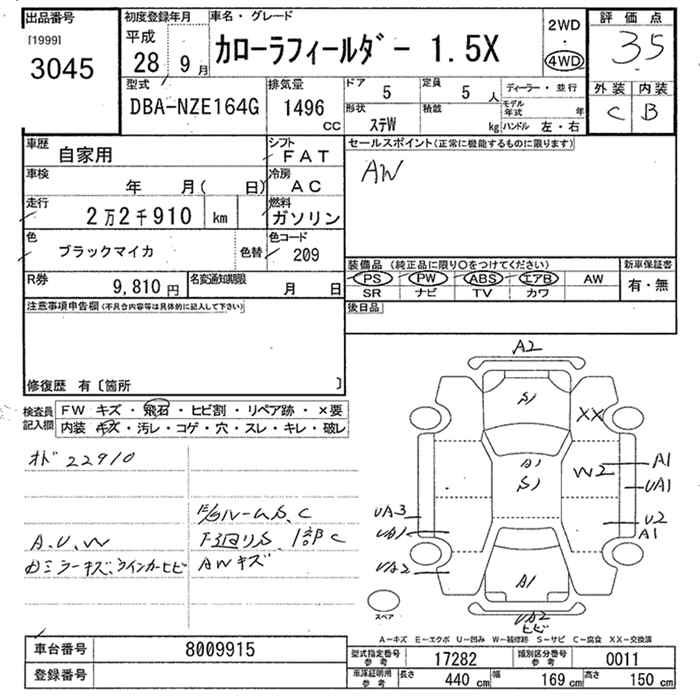 出品番号
[1999]
3045
初度登録年月
平成
28 9月
車名・グレード
カローラフィールダー 1.5X
2WD
・
4WD
評価点
3.5
外装 内装
C B
型式
DBA-NZE164G
排気量
1496
CC
ドア 5
定員 5 人
形状 ステW
積載 kg
ディーラー・並行
モデル年式 年
ハンドル 左・右
車歴
自家用
シフト
FAT
車検
年 月( 日)
冷房
AC
走行
2万2千910 km
燃料
ガソリン
色
ブラックマイカ
色替
色コード
209
R券
9,810円
名変通知期限
月 日
セールスポイント(正常に機能するものに限ります)
AW
装備品 (純正品に限り○をつけてください)
PS PW ABS エアB AW
SR ナビ TV カワ
新車保証書
有・無
後日品
注意事項申告欄(不具合内容等は具体的に記入して下さい)
修復歴 有〔箇所 〕
検査員記入欄
FW キズ・飛石・ヒビ割・リペア跡・×要
内装 キズ・汚レ・コゲ・穴・スレ・キレ・破レ
オド 22910
A.U.W
ミラーキズ、ウインカーヒビ
ルームS、C
下廻りS、1部C
AWキズ
A2
S1
XX
A1
S1
W2
A1
UA1
UA3
UA1
U2
A1
UA2
A1
UA2
ヒビ
スペア
A-キズ E-エクボ U-凹み W-補修跡 S-サビ C-腐食 XX-交換済
車台番号
8009915
登録番号
型式指定番号
参考
17282
類別区分番号
参考
0011
車庫証明用
参考
長さ 440 cm
幅 169 cm
高さ 150 cm